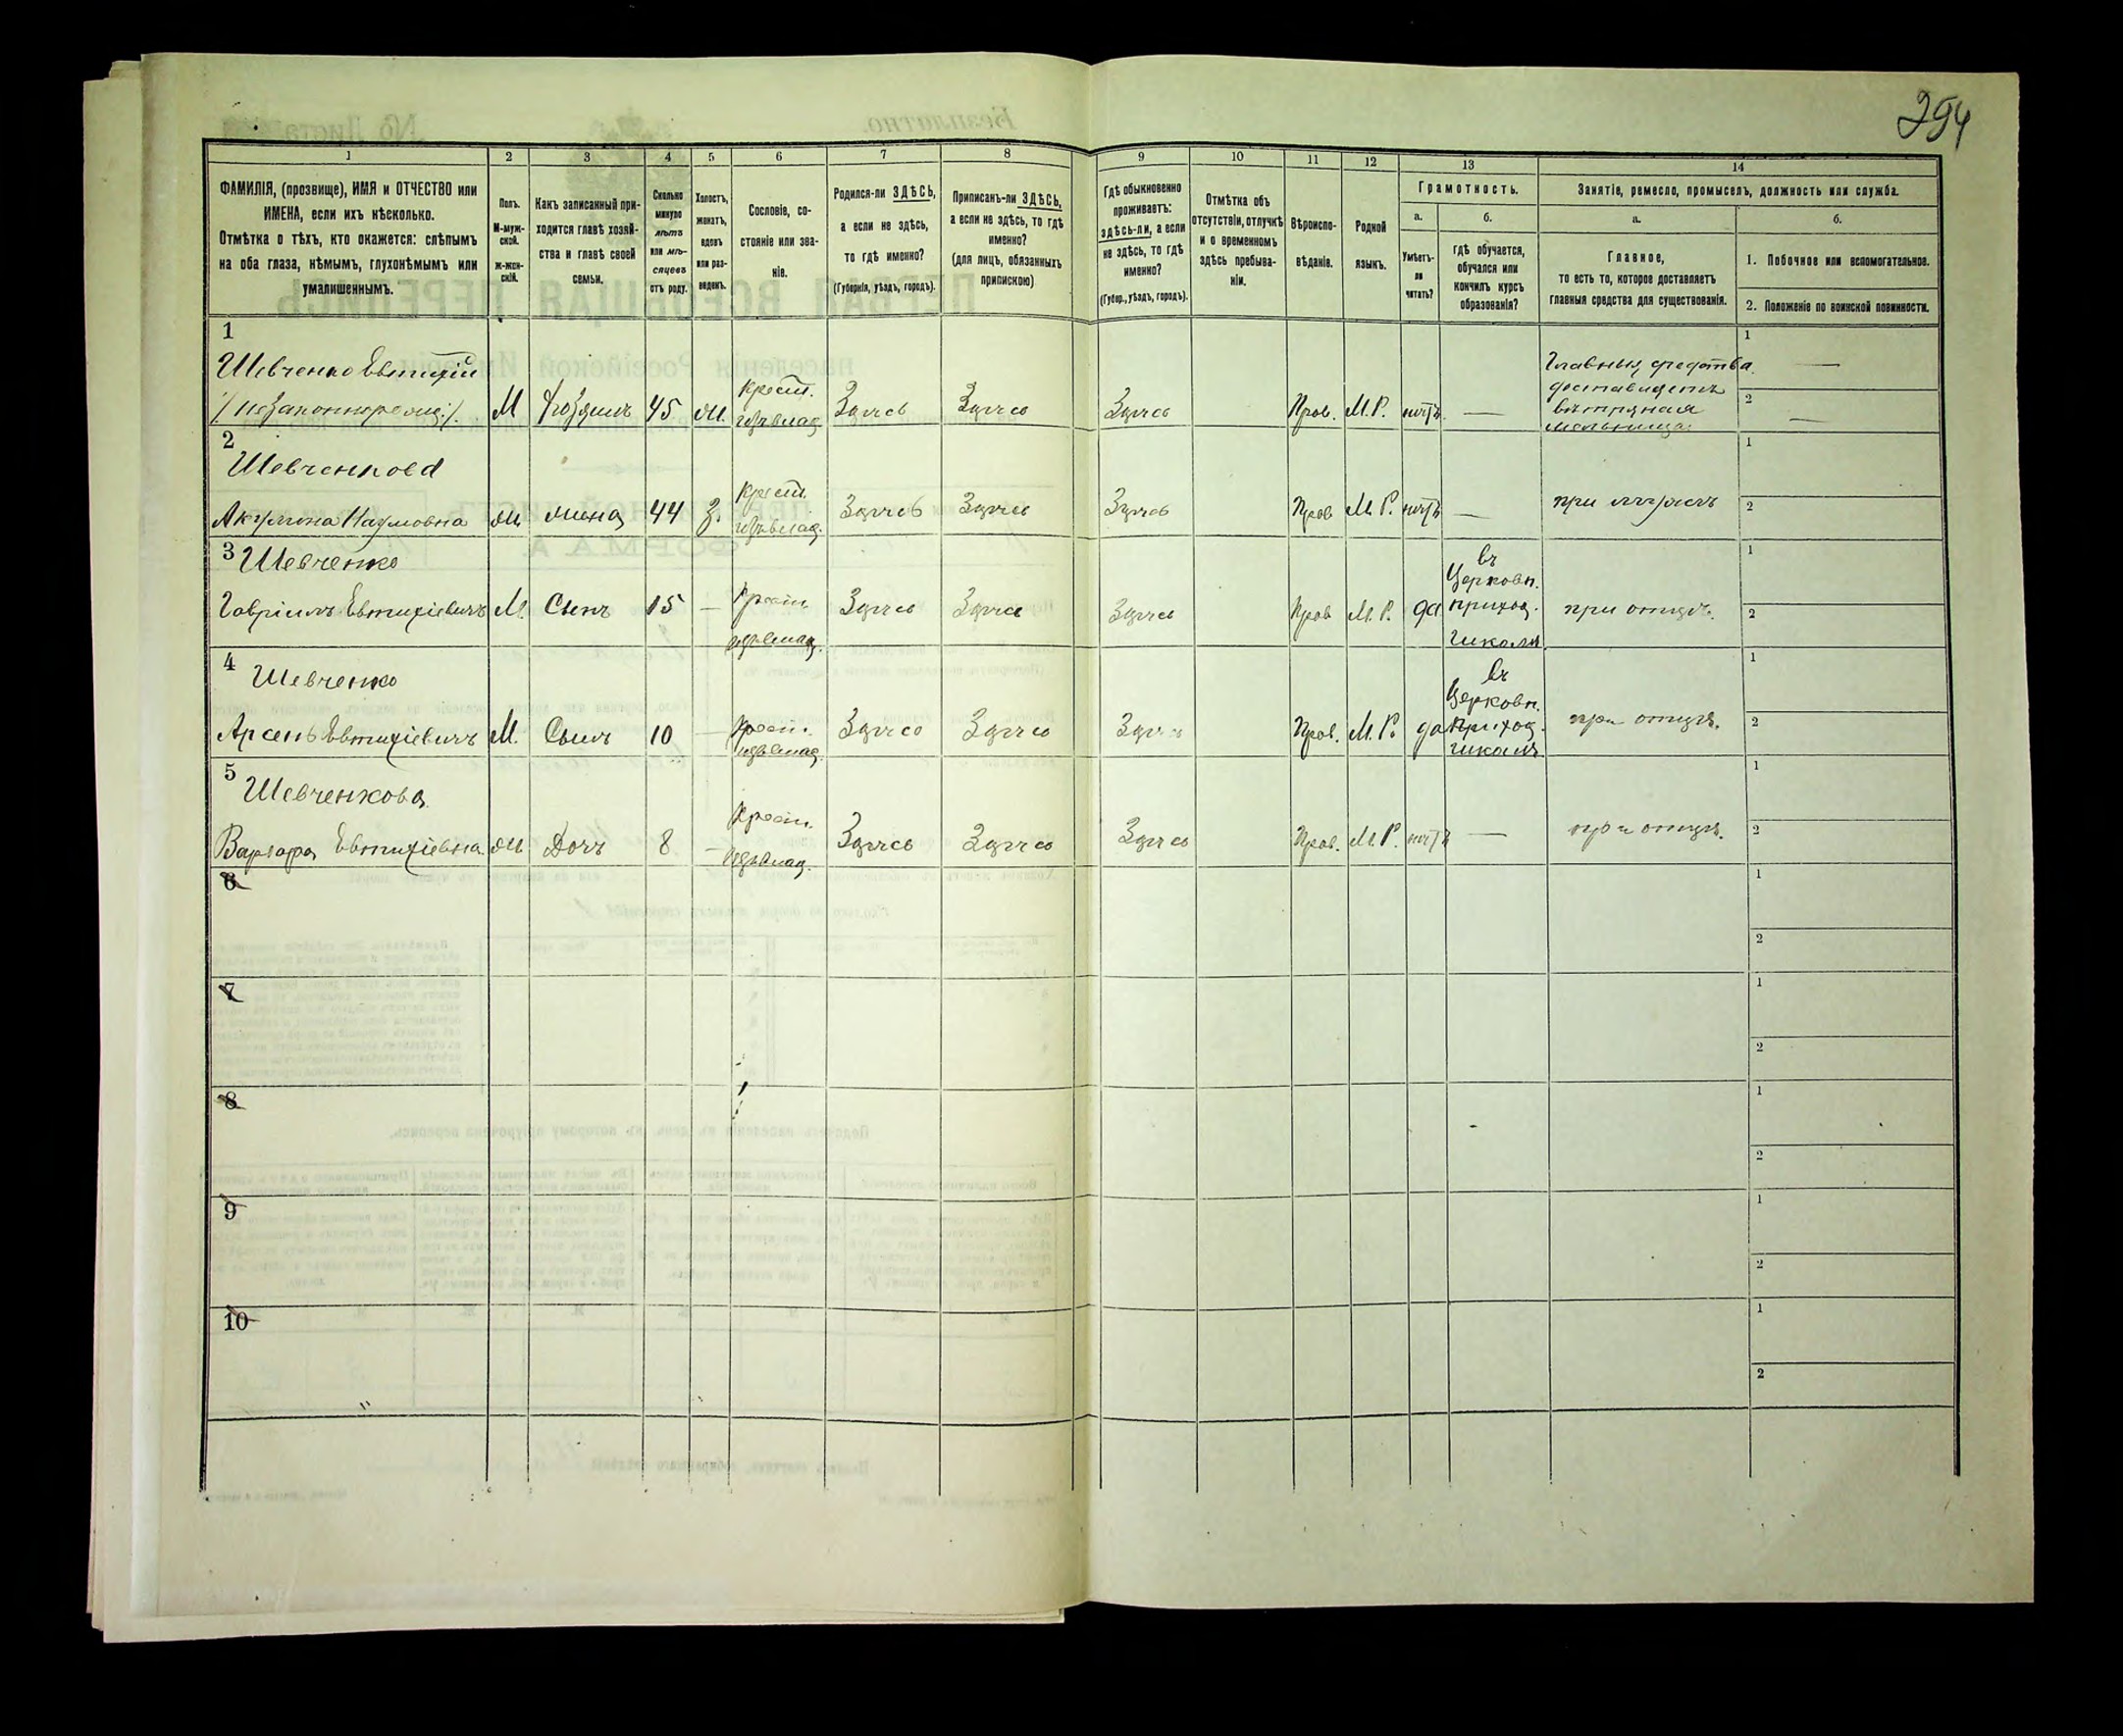 294
1 2 3 4 5 6 7 8 9 10 11 12 13 14
ФАМИЛІЯ, (прозвище), ИМЯ и ОТЧЕСТВО или
ИМЕНА, если ихъ нѣсколько.
Отмѣтка о тѣхъ, кто окажется: слѣпымъ
на оба глаза, нѣмымъ, глухонѣмымъ или
умалишеннымъ.
Полъ.
М-муж-
ской.
Ж-жен-
скій.
Какъ записанный при-
ходится главѣ хозяй-
ства и главѣ своей
семьи.
Сколько
минуло
лѣтъ
или мѣ-
сяцевъ
отъ роду.
Холостъ,
женатъ,
вдовъ
или раз-
веденъ.
Сословіе, со-
стояніе или зва-
ніе.
Родился-ли ЗДѢСЬ,
а если не здѣсь,
то гдѣ именно?
(Губернія, уѣздъ, городъ).
Приписанъ-ли ЗДѢСЬ,
а если не здѣсь, то гдѣ
именно?
(для лицъ, обязанныхъ
припискою)
Гдѣ обыкновенно
проживаетъ:
здѣсь-ли, а если
не здѣсь, то гдѣ
именно?
(Губер., уѣздъ, городъ).
Отмѣтка объ
отсутствіи, отлучкѣ
и о временномъ
здѣсь пребыва-
ніи.
Вѣроиспо-
вѣданіе.
Родной
языкъ.
Грамотность.
а.
Умѣетъ-
ли
читать?
б.
гдѣ обучается,
обучался или
кончилъ курсъ
образованія?
Занятіе, ремесло, промыселъ, должность или служба.
а.
Главное,
то есть то, которое доставляетъ
главныя средства для существованія.
б.
1. Побочное или вспомогательное.
2. Положеніе по воинской повинности.
1
Шевченко Евтихій
М Хозяинъ 45 ж. Крест. Здѣсь Здѣсь Здѣсь Прав. М.Р. нѣтъ —
Главныя средства
доставляетъ
вѣтряная
мельница.
1 —
2 —
2
Шевченкова
Акулина Наумовна ж жена 44 З. Крест. Здѣсь Здѣсь Здѣсь Прав М.Р. нѣтъ — при мужѣ
1
2
3 Шевченко
Гавріилъ Евтихіевичъ М. Сынъ 15 — Крест. Здѣсь Здѣсь Здѣсь Прав М.Р. да
въ
Церковн.
приход.
школѣ
при отцѣ.
1
2
4 Шевченко
Арсень Евтихіевичъ М. Сынъ 10 — Крест. Здѣсь Здѣсь Здѣсь Прав. М.Р. да
въ
Церковн.
приход.
школѣ
при отцѣ.
1
2
5 Шевченкова
Варвара Евтихіевна ж Дочь 8 — Крест. Здѣсь Здѣсь Здѣсь Прав. М.Р. нѣтъ — при отцѣ.
1
2
6
1
2
7
1
2
8
1
2
9
1
2
10
1
2